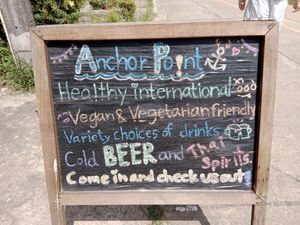 Anchor Point
Healthy international Food
Vegan & Vegetarian friendly
Variety choices of drinks
Cold BEER and Thai Spirits
Come in and check us out